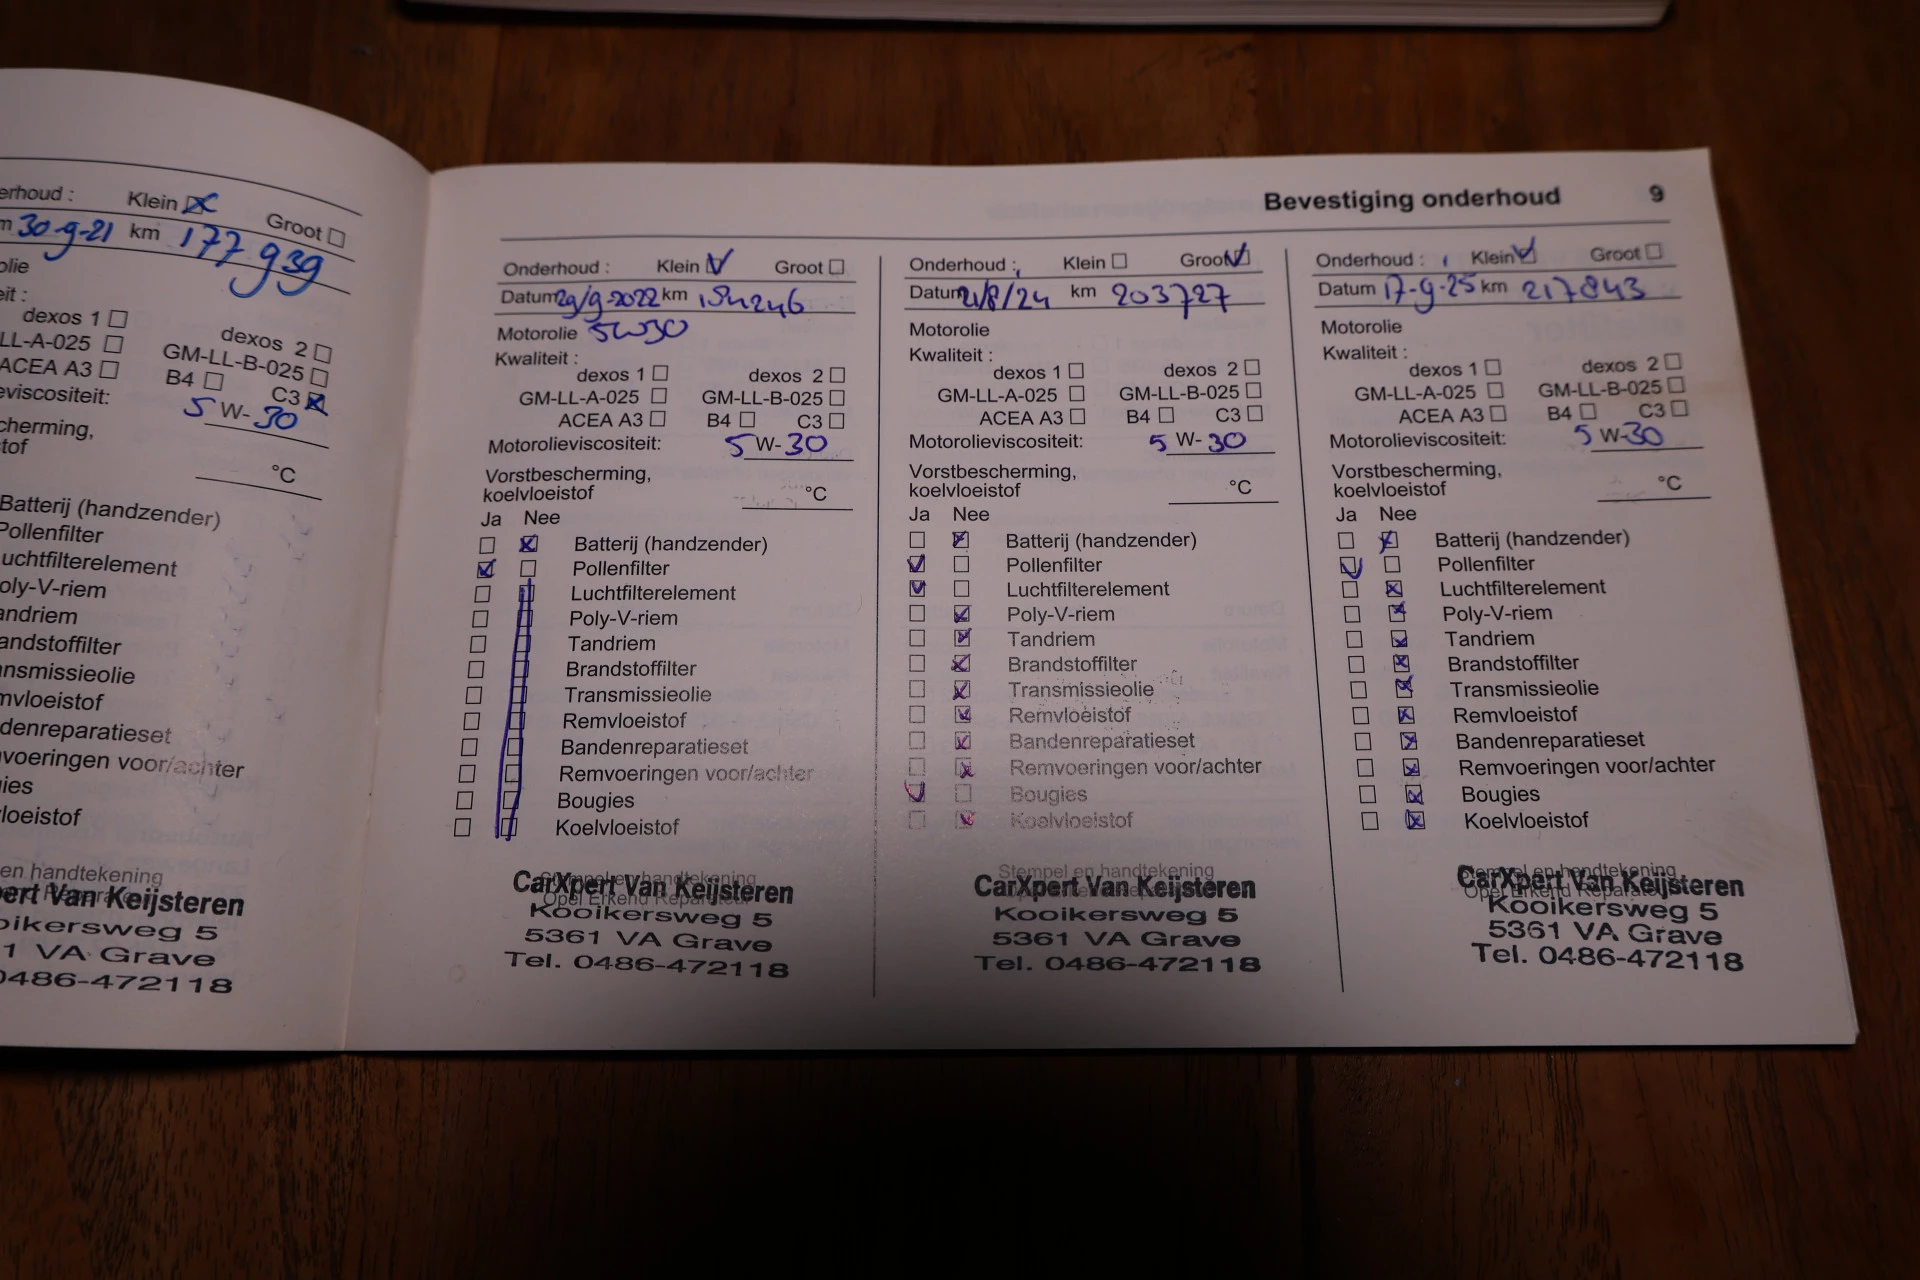 erhoud : Klein Groot
30-9-21 km 177939
olie
eit :
dexos 1 dexos 2
LL-A-025 GM-LL-B-025
ACEA A3 B4 C3
eviscositeit: 5 W- 30
cherming,
tof
°C
Batterij (handzender)
Pollenfilter
uchtfilterelement
oly-V-riem
andriem
andstoffilter
ansmissieolie
mvloeistof
denreparatieset
voeringen voor/achter
ies
loeistof
en handtekening
pert Van Keijsteren
oikersweg 5
1 VA Grave
0486-472118
Bevestiging onderhoud 9
Onderhoud : Klein Groot
Datum 29/9-2022 km
Motorolie 5W30
Kwaliteit :
dexos 1 dexos 2
GM-LL-A-025 GM-LL-B-025
ACEA A3 B4 C3
Motorolieviscositeit: 5 W- 30
Vorstbescherming,
koelvloeistof °C
Ja Nee
Batterij (handzender)
Pollenfilter
Luchtfilterelement
Poly-V-riem
Tandriem
Brandstoffilter
Transmissieolie
Remvloeistof
Bandenreparatieset
Remvoeringen voor/achter
Bougies
Koelvloeistof
Stempel en handtekening
Opel Erkend Reparateur
CarXpert Van Keijsteren
Kooikersweg 5
5361 VA Grave
Tel. 0486-472118
Onderhoud : Klein Groot
Datum 21/8/24 km 203727
Motorolie
Kwaliteit :
dexos 1 dexos 2
GM-LL-A-025 GM-LL-B-025
ACEA A3 B4 C3
Motorolieviscositeit: 5 W- 30
Vorstbescherming,
koelvloeistof °C
Ja Nee
Batterij (handzender)
Pollenfilter
Luchtfilterelement
Poly-V-riem
Tandriem
Brandstoffilter
Transmissieolie
Remvloeistof
Bandenreparatieset
Remvoeringen voor/achter
Bougies
Koelvloeistof
Stempel en handtekening
CarXpert Van Keijsteren
Kooikersweg 5
5361 VA Grave
Tel. 0486-472118
Onderhoud : Klein Groot
Datum 17-9-25 km 217843
Motorolie
Kwaliteit :
dexos 1 dexos 2
GM-LL-A-025 GM-LL-B-025
ACEA A3 B4 C3
Motorolieviscositeit: 5 W-30
Vorstbescherming,
koelvloeistof °C
Ja Nee
Batterij (handzender)
Pollenfilter
Luchtfilterelement
Poly-V-riem
Tandriem
Brandstoffilter
Transmissieolie
Remvloeistof
Bandenreparatieset
Remvoeringen voor/achter
Bougies
Koelvloeistof
Stempel en handtekening
Opel Erkend Reparateur
CarXpert Van Keijsteren
Kooikersweg 5
5361 VA Grave
Tel. 0486-472118